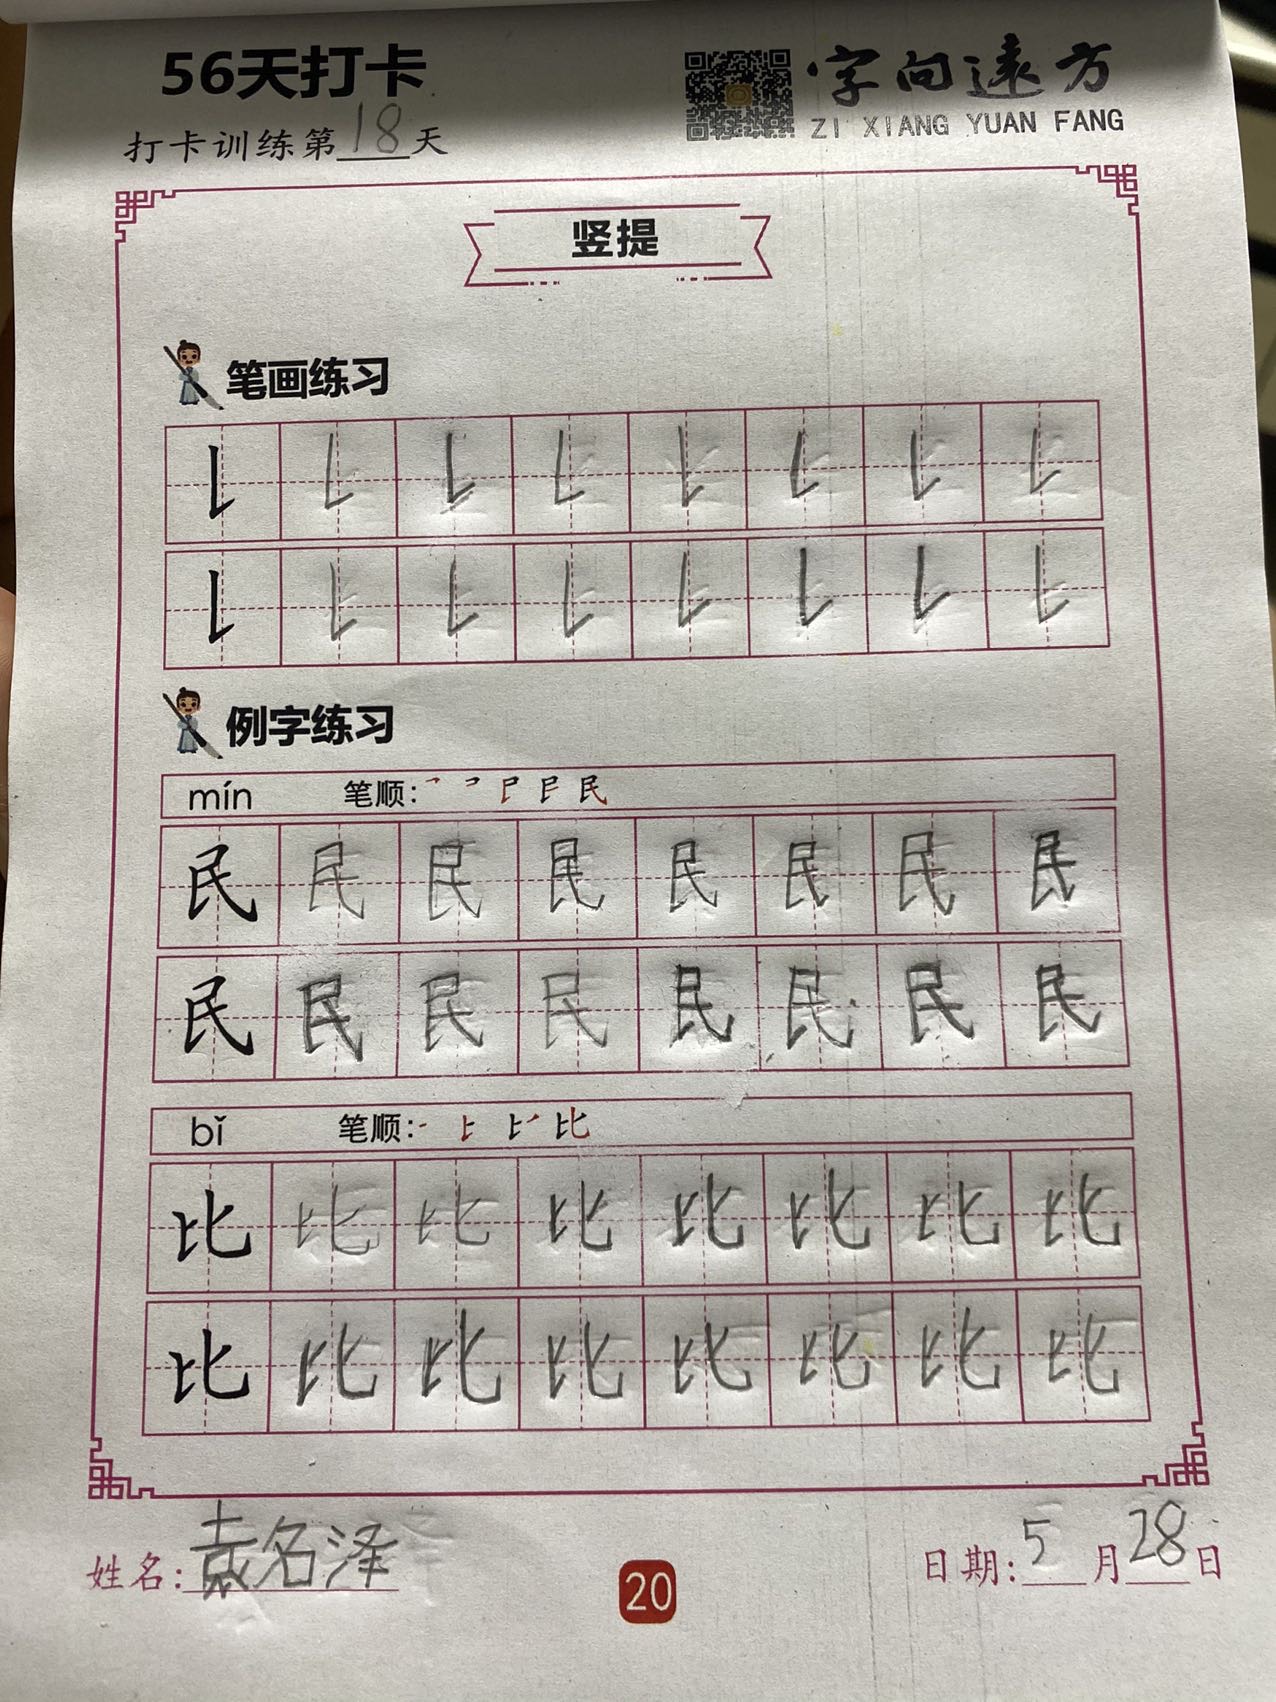 56天打卡
字向远方
ZI XIANG YUAN FANG
打卡训练第18天
竖提
笔画练习
例字练习
mín 笔顺: 民
民 民 民 民 民 民 民 民
民 民 民 民 民 民 民 民
bǐ 笔顺: 比
比 比 比 比 比 比 比 比
比 比 比 比 比 比 比 比
姓名: 袁名泽
20
日期: 5月28日